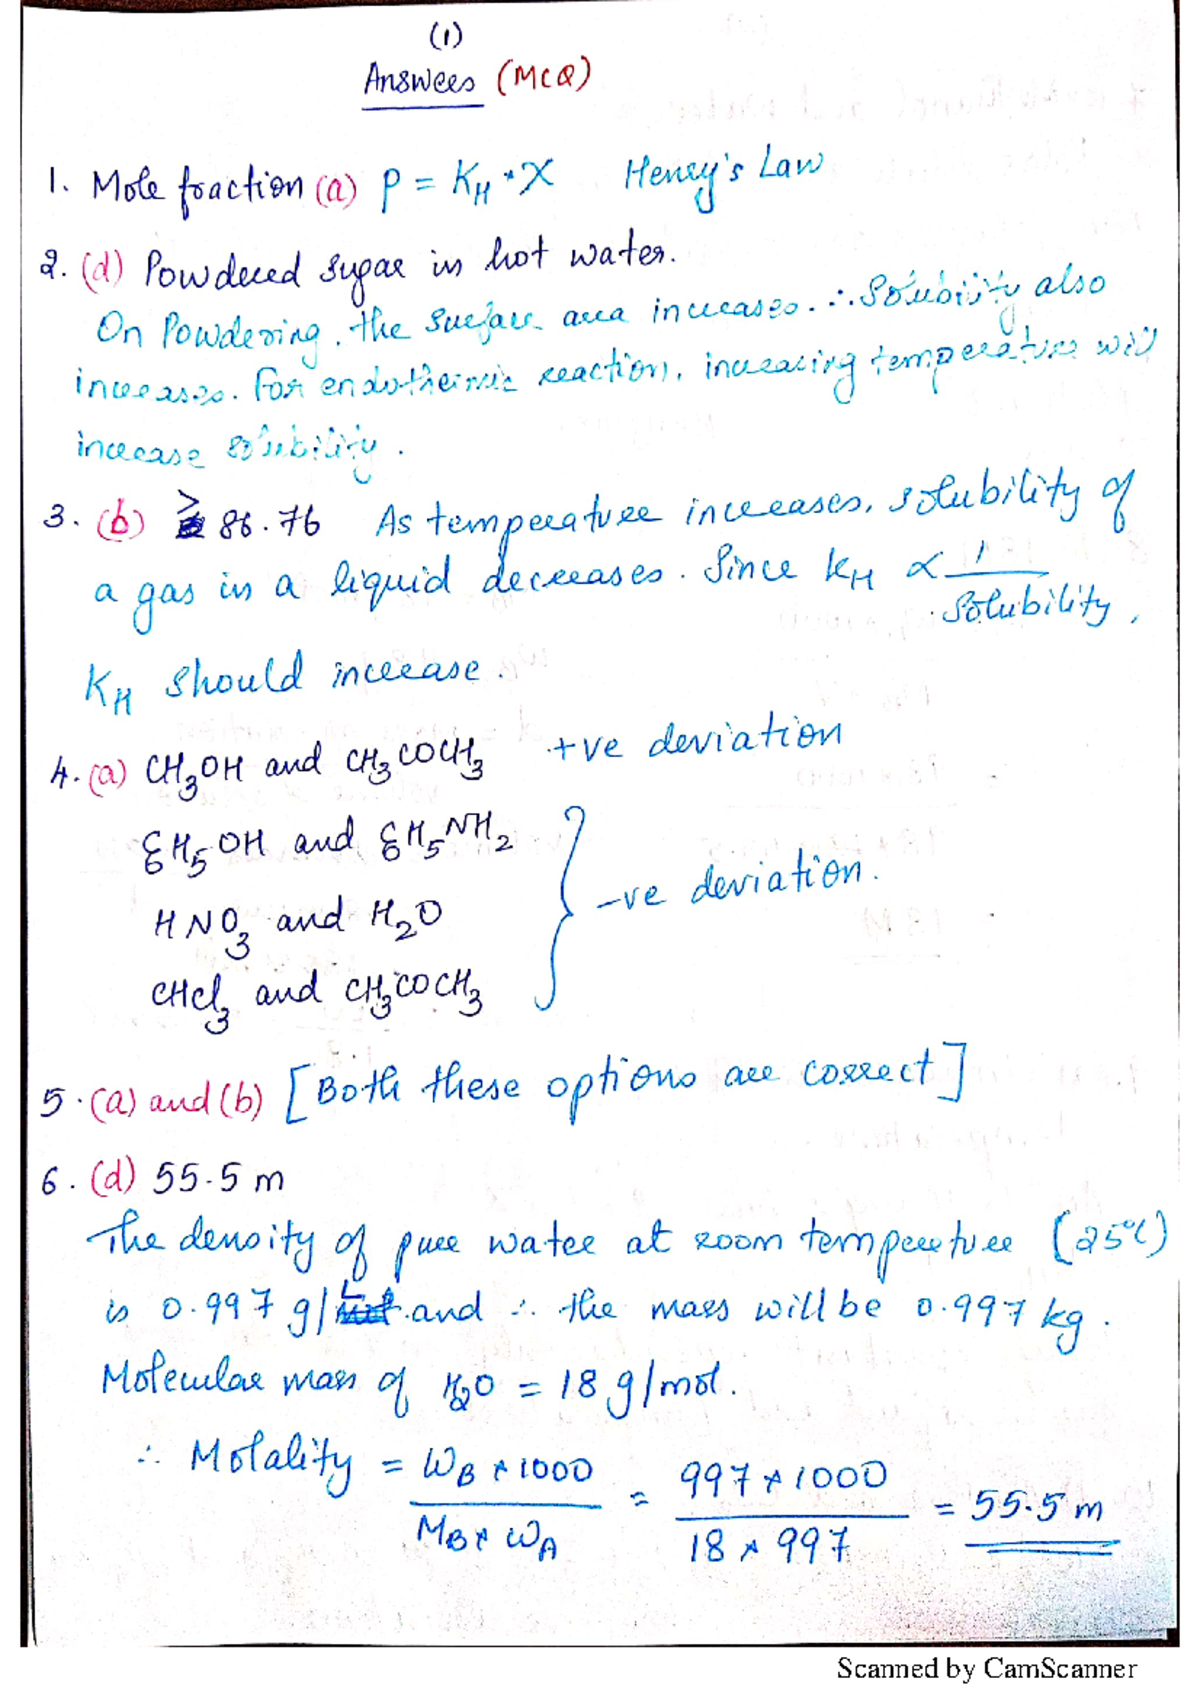 (1)
Answers (MCQ)
1. Mole fraction (a) P = K_H * X Henry's Law
2. (d) Powdered sugar in hot water.
On Powdering, the surface area increases. ∴ Solubility also
increases. For endothermic reaction, increasing temperature will
increase solubility.
3. (b) > 86.76 As temperature increases, solubility of
a gas in a liquid decreases. Since K_H ∝ 1/Solubility,
K_H should increase.
4. (a) CH₃OH and CH₃COCH₃ +ve deviation
C₆H₅OH and C₆H₅NH₂
HNO₃ and H₂O } -ve deviation.
CHCl₃ and CH₃COCH₃
5. (a) and (b) [Both these options are correct]
6. (d) 55.5 m
The density of pure water at room temperature (25°C)
is 0.997 g/L and ∴ the mass will be 0.997 kg.
Molecular mass of H₂O = 18 g/mol.
∴ Molality = W_B * 1000 / M_B * W_A = 997 * 1000 / 18 * 997 = 55.5 m
Scanned by CamScanner